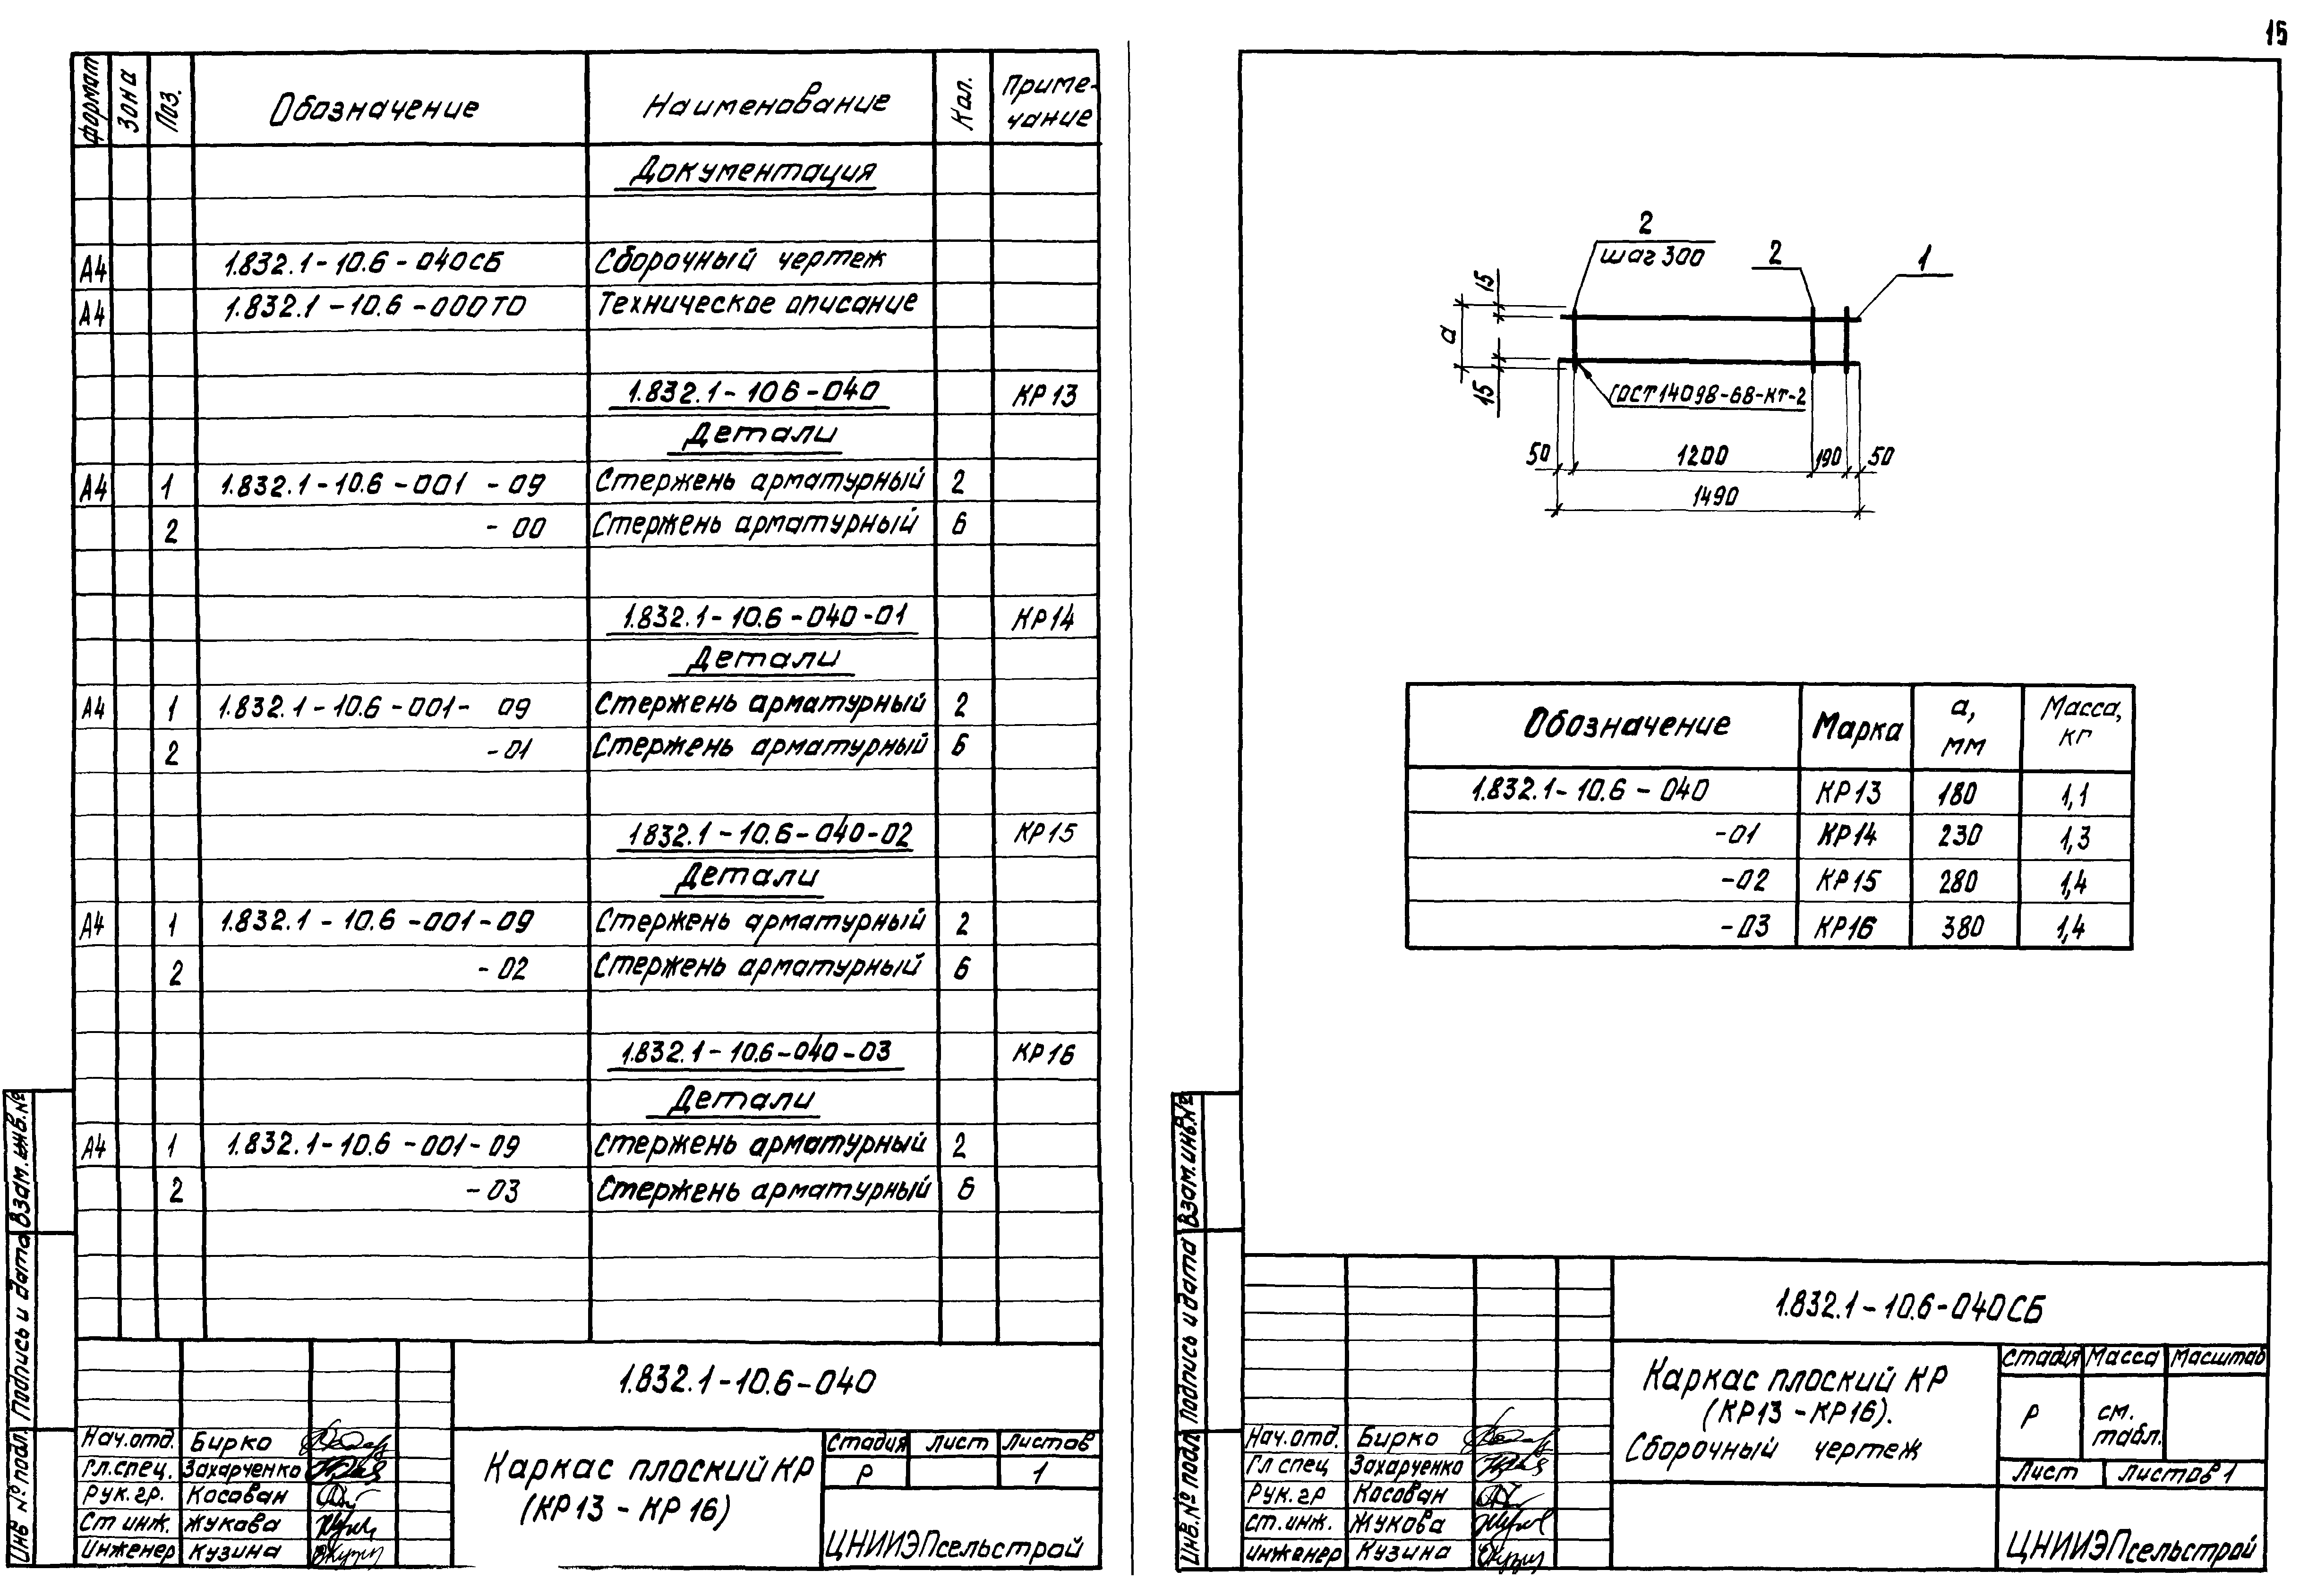 15
формат Зона Поз. Обозначение Наименование Кол. Приме-
чание
Документация
А4 1.832.1-10.6-040СБ Сборочный чертеж
А4 1.832.1-10.6-000ТО Техническое описание
1.832.1-106-040 КР13
Детали
А4 1 1.832.1-10.6-001 -09 Стержень арматурный 2
2 -00 Стержень арматурный 6
1.832.1-10.6-040-01 КР14
Детали
А4 1 1.832.1-10.6-001- 09 Стержень арматурный 2
2 -01 Стержень арматурный 6
1832.1-10.6-040-02 КР15
Детали
А4 1 1.832.1-10.6-001-09 Стержень арматурный 2
2 -02 Стержень арматурный 6
1.832.1-10.6-040-03 КР16
Детали
А4 1 1.832.1-10.6-001-09 Стержень арматурный 2
2 -03 Стержень арматурный 6
Взам.инв.№
Подпись и дата
Инв № подл.
1.832.1-10.6-040
Нач.отд. Бирко
Гл.спец. Захарченко
Рук.гр. Косован
Ст инж. Жукова
Инженер Кузина
Каркас плоский КР
(КР13 - КР16)
Стадия Лист Листов
Р 1
ЦНИИЭПсельстрой
2
шаг 300
2
1
15
а
15
ГОСТ14098-68-КТ-2
50 1200 190 50
1490
Обозначение Марка а,
мм Масса,
кг
1.832.1-10.6-040 КР13 180 1,1
-01 КР14 230 1,3
-02 КР15 280 1,4
-03 КР16 380 1,4
Взам.инв.№
Подпись и дата
Инв.№ подл.
1.832.1-10.6-040СБ
Нач.отд. Бирко
Гл спец Захарченко
Рук.гр Косован
ст.инж. Жукова
инженер Кузина
Каркас плоский КР
(КР13 - КР16).
Сборочный чертеж
Стадия Масса Масштаб
Р см.
табл.
Лист Листов 1
ЦНИИЭПсельстрой